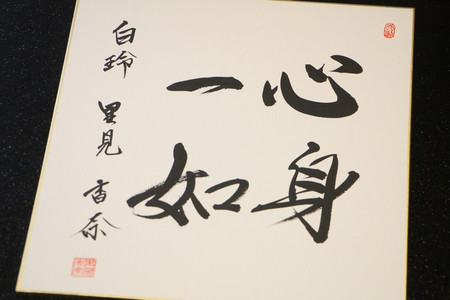 心身
一如
白玲 里見 香奈